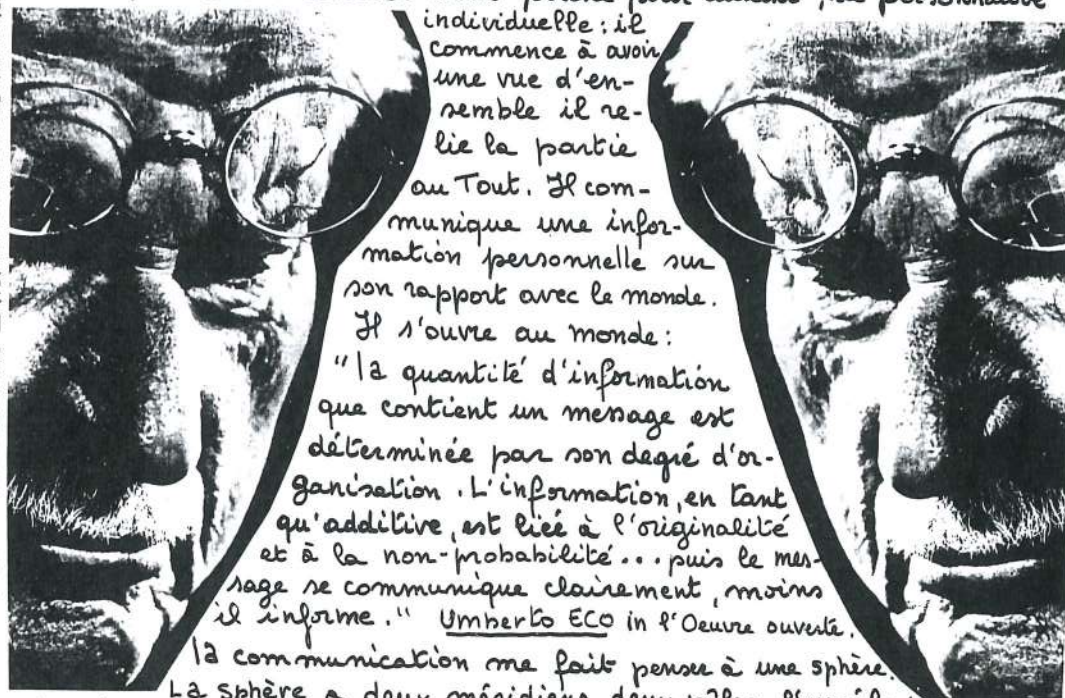 individuelle : il
commence à avoir
une vue d'en-
semble il re-
lie la partie
au Tout. Il com-
munique une infor-
mation personnelle sur
son rapport avec le monde.
Il s'ouvre au monde :
"la quantité d'information
que contient un message est
déterminée par son degré d'or-
ganisation. L'information, en tant
qu'additive, est liée à l'originalité
et à la non-probabilité... puis le mes-
sage se communique clairement, moins
il informe." Umberto ECO in l'Oeuvre ouverte.
la communication me fait penser à une sphère.
La sphère a deux méridiens, deux